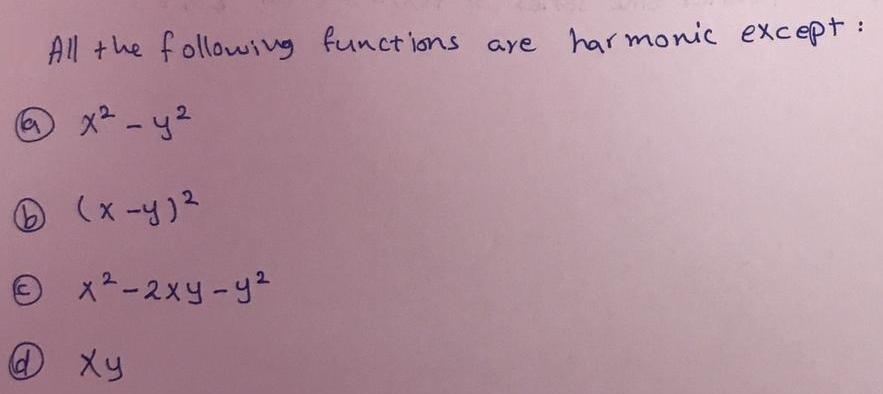 All the following functions are harmonic except :
(a) x² - y²
(b) (x - y)²
(c) x² - 2xy - y²
(d) xy